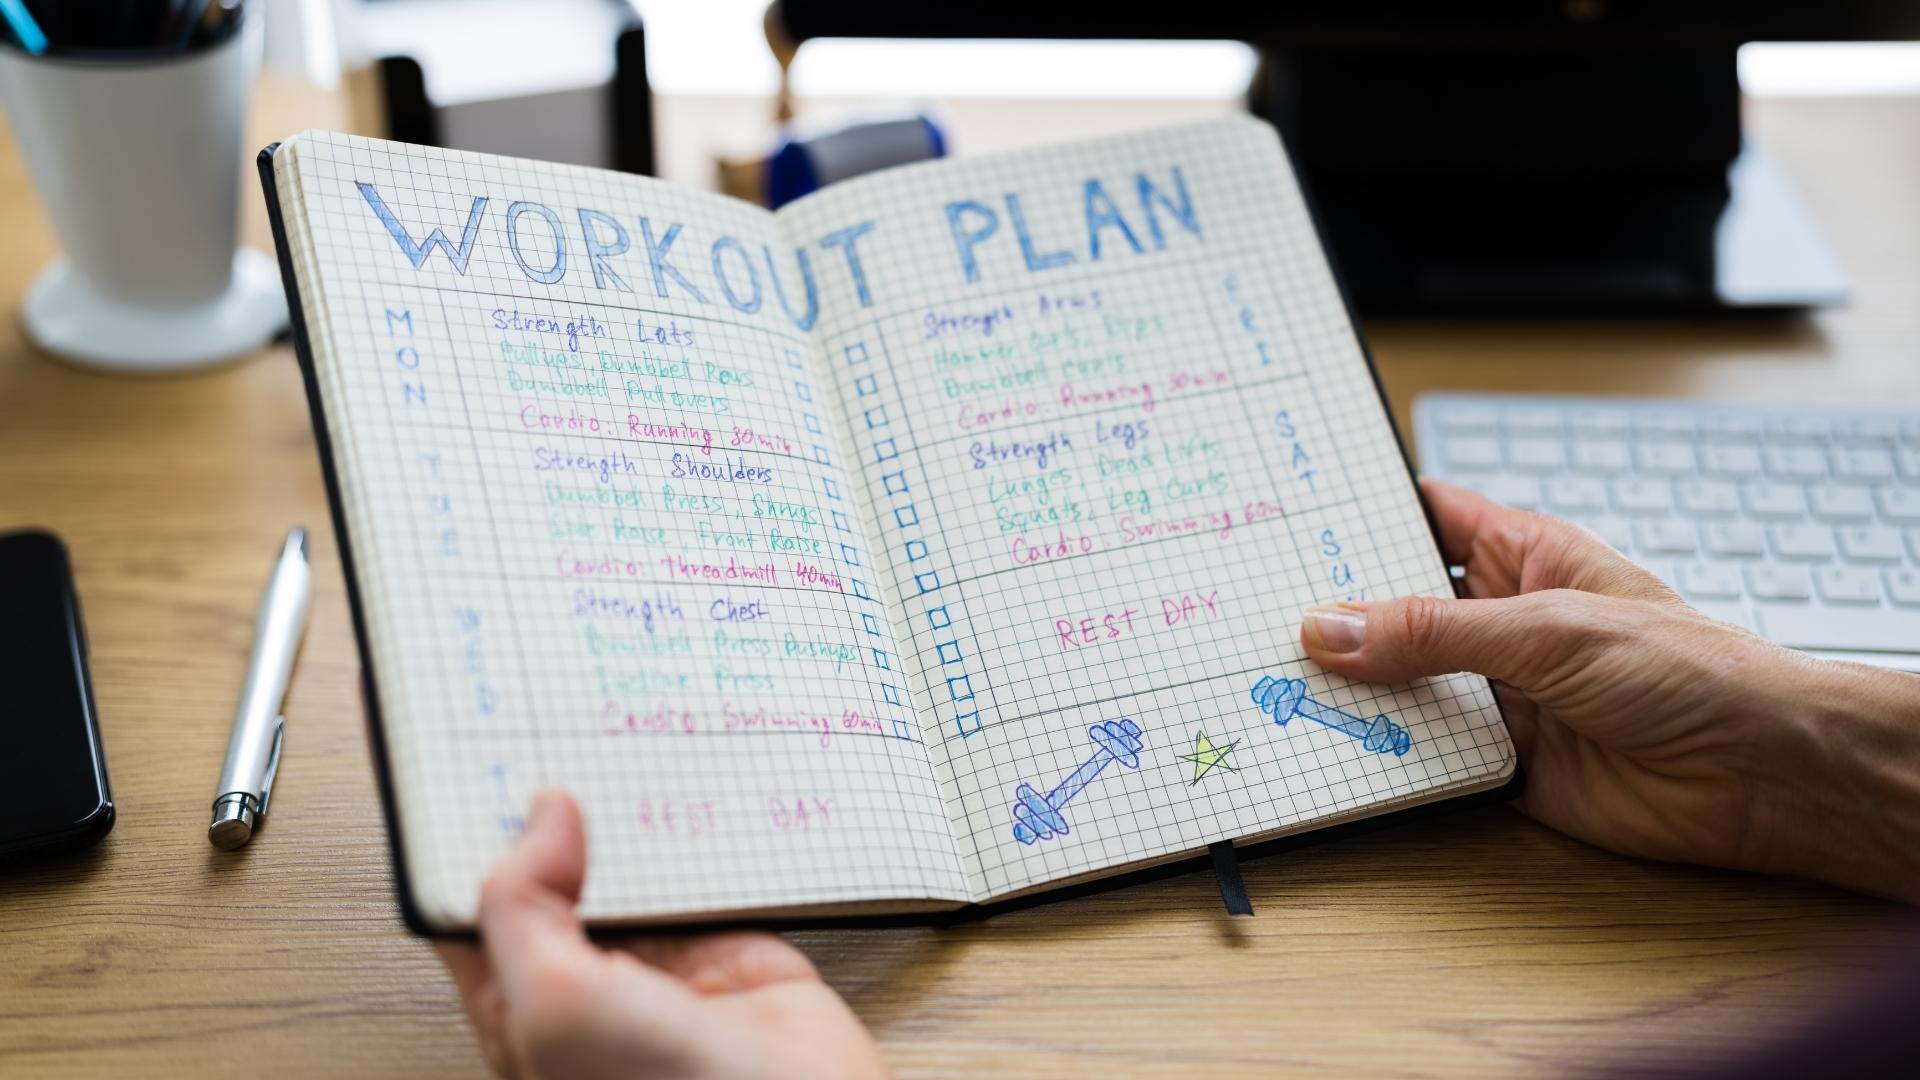 WORKOUT PLAN
MON
Strength Lats
Pullups, Dumbbell Rows
Dumbbell Pullovers
Cardio: Running 30min
TUE
Strength Shoulders
Dumbbell Press, Shrugs
Side Raise, Front Raise
Cardio: threadmill 40min
WED
Strength Chest
Dumbbell Press, Pushups
Incline Press
Cardio: Swimming 60min
REST DAY
FRI
Strength Arms
Hammer Curls, Dips
Dumbbell Curls
Cardio: Running 30min
SAT
Strength Legs
Lunges, Dead Lifts
Squats, Leg Curls
Cardio: Swimming 60m
REST DAY